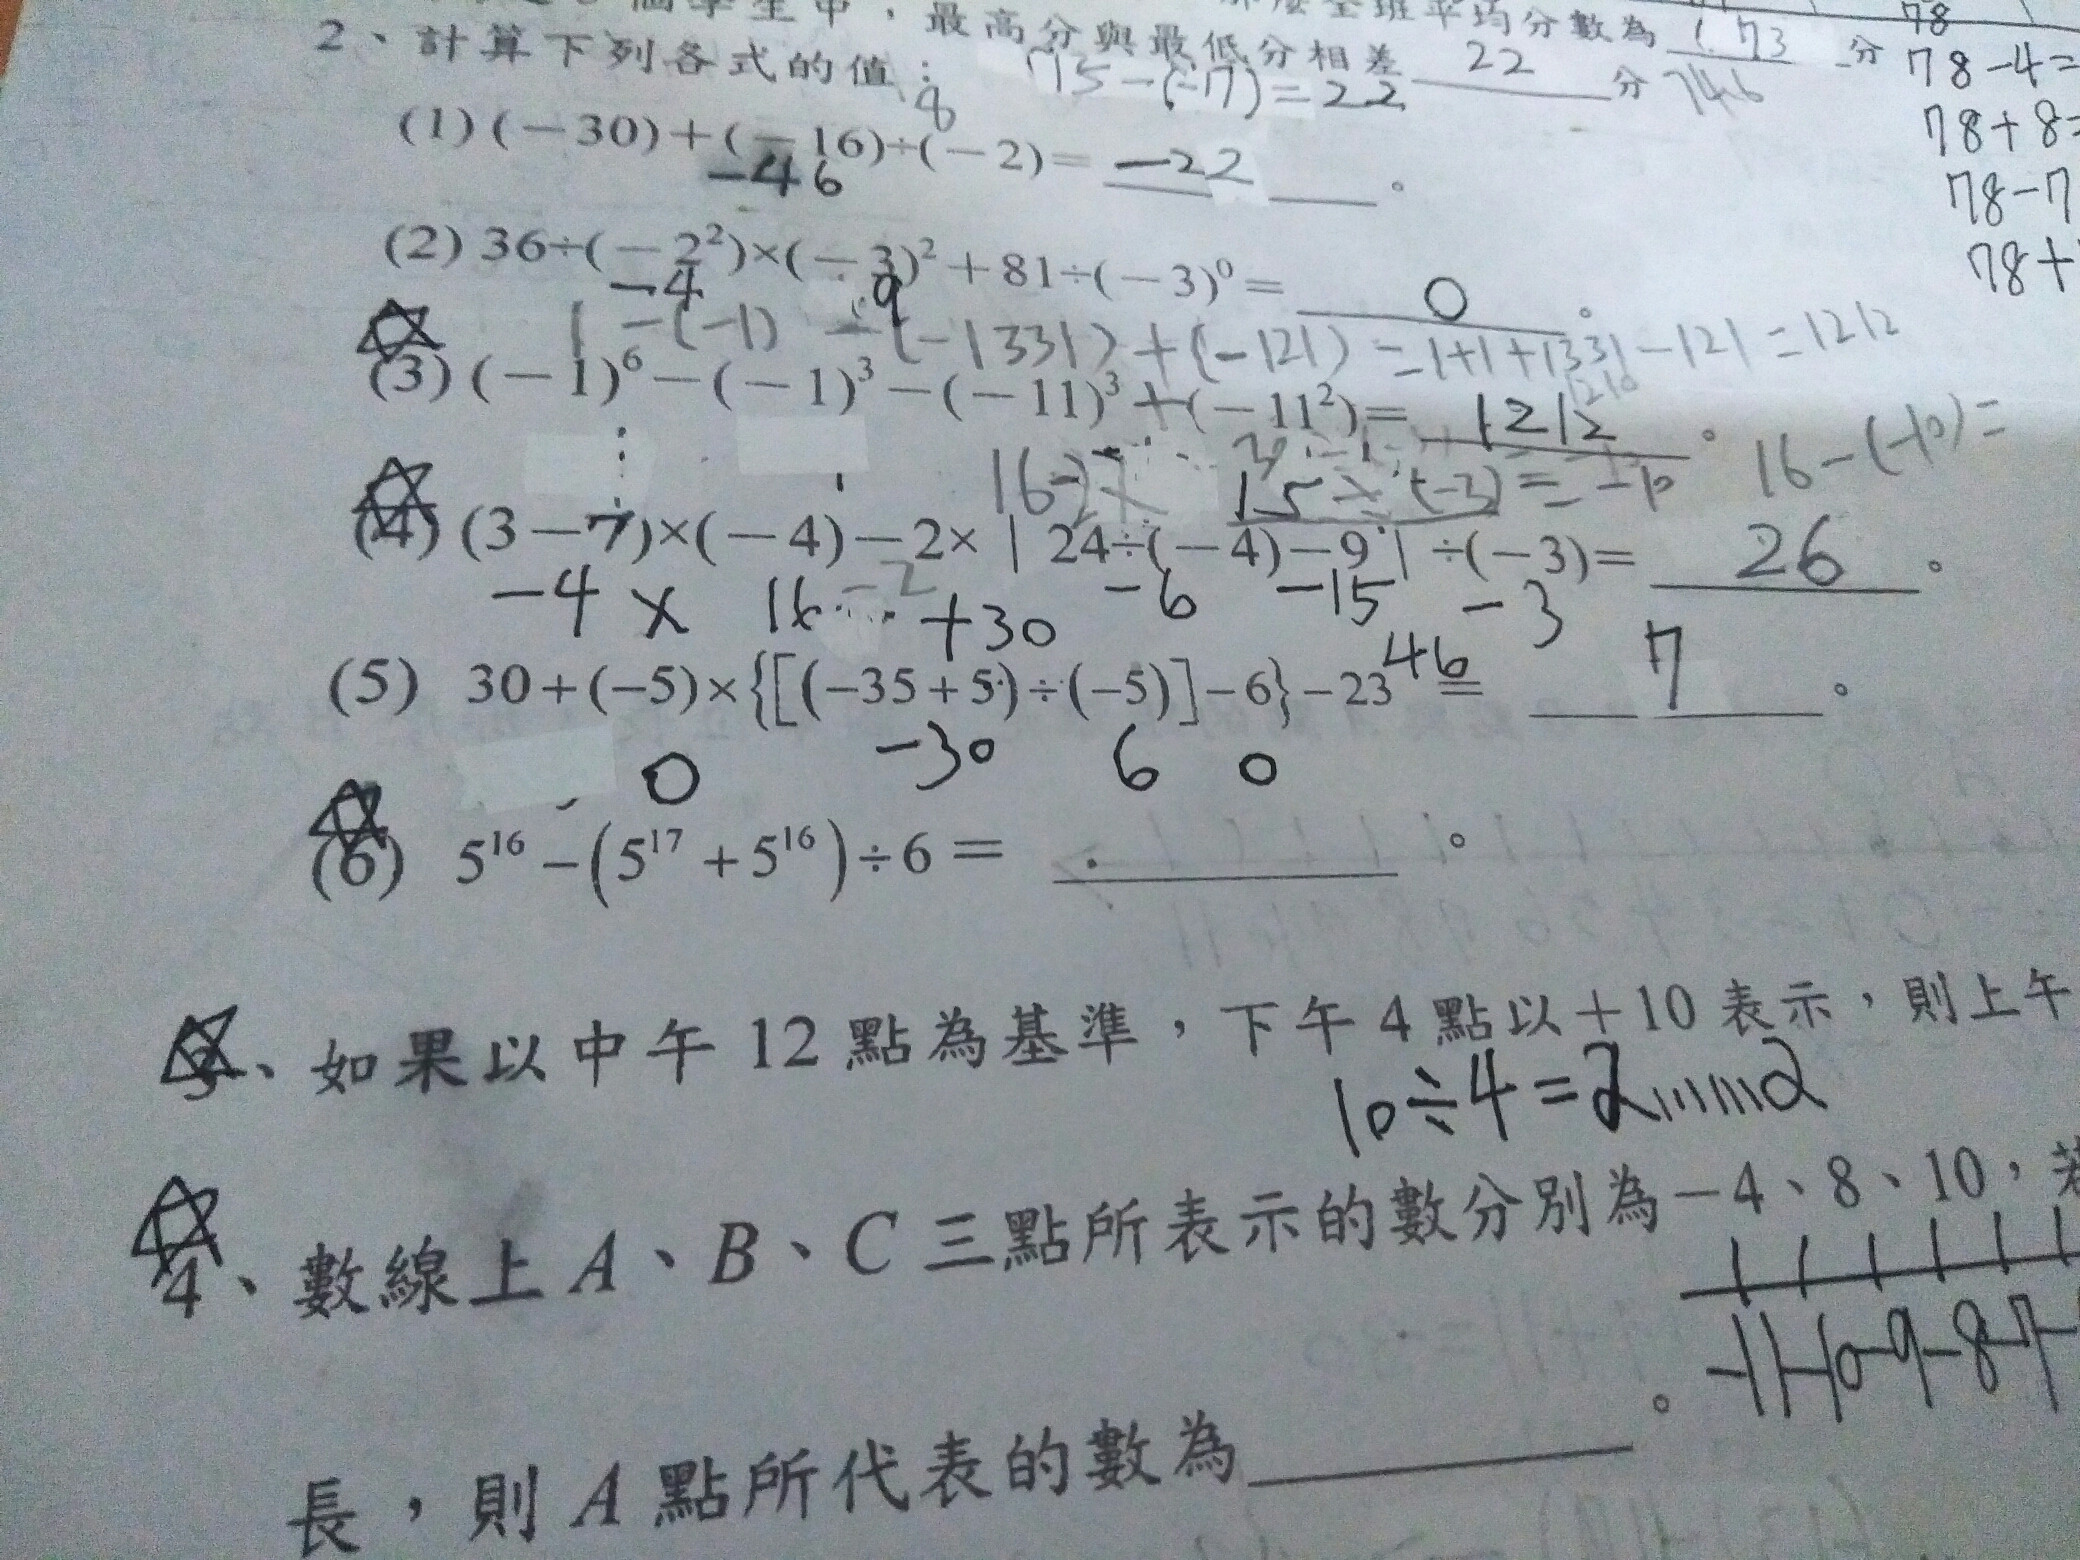 個學生中，最高分與最低分相差 22 分
全班平均分數為 73 分
2、計算下列各式的值：
15-(-17)=22
746
78
78-4=
78+8=
78-7
78+
8
(1) (－30)＋(－16)÷(－2)= -22 。
-46
(2) 36÷(－2²)×(－3)²＋81÷(－3)⁰= 0 。
-4 9
1 -(-1) -(-1331)+(-121)=1+1+1331-121=1212
(3) (－1)⁶－(－1)³－(－11)³＋(－11²)= 1212 。
1210
15 × (-3)= -10 16-(-10)=
(4) (3－7)×(－4)－2×｜24÷(－4)－9｜÷(－3)= 26 。
-4 × 16 +30 -6 -15 -3
(5) 30+(−5)×{[(−35+5)÷(−5)]−6}−23 = 7 。
46
0 -30 6 0
(6) 5¹⁶−(5¹⁷+5¹⁶)÷6= 。
3、如果以中午12點為基準，下午4點以＋10表示，則上午
10÷4=2……2
4、數線上A、B、C三點所表示的數分別為－4、8、10，若
-11-10-9-8-7-
長，則A點所代表的數為 。